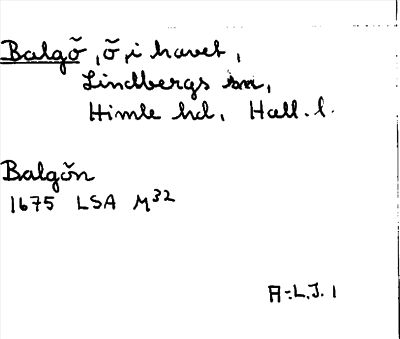 Balgö, ö, i havet,
Lindbergs sn,
Himle hd, Hall. l.
Balgön
1675 LSA M32
A-L.J. 1